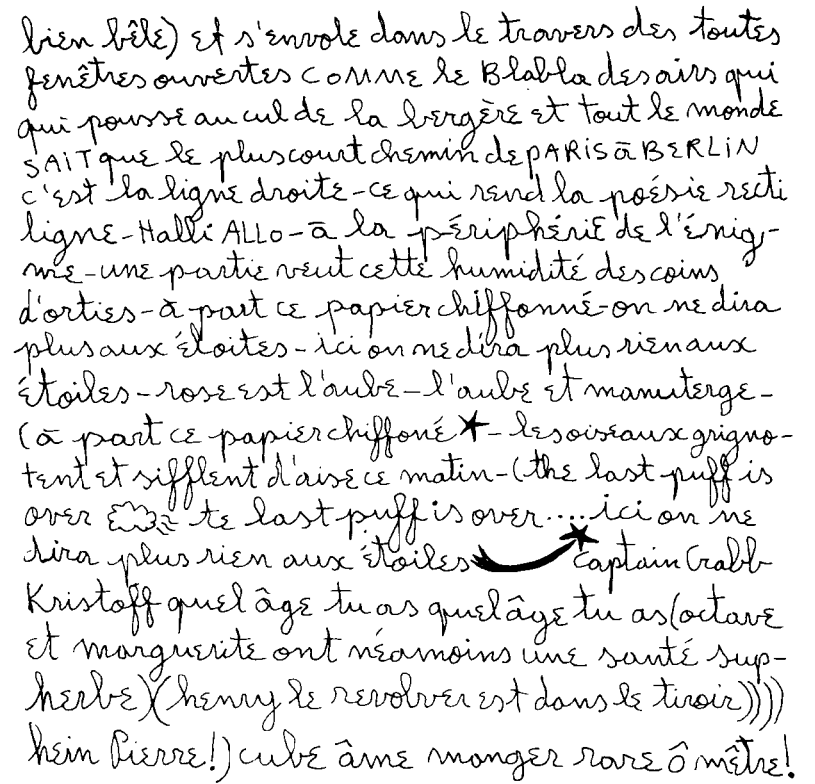 bien bêlé) et s'envole dans le travers des toutes
fenêtres ouvertes comme le Blabla des airs qui
qui pousse au cul de la bergère et tout le monde
SAIT que le plus court chemin de pARIS ā BERLIN
c'est la ligne droite-ce qui rend la poésie recti
ligne-Halli ALLO-ā la périphérie de l'énig,-
me-une partie veut cette humidité des coins
d'orties-ā part ce papier chiffonné-on ne dira
plus aux étoites-ici on ne dira plus rien aux
étoiles-rose est l'aube-l'aube et manuterge-
(ā part ce papier chiffoné ★-les oiseaux grigno-
tent et sifflent d'aise ce matin-(the last puff is
over te last puff is over....ici on ne
dira plus rien aux étoiles Captain Crabb
Kristoff quel âge tu as quel âge tu as (octave
et marguerite ont néamoins une santé sup-
herbe)(henry le revolver est dans le tiroir))))
hein Pierre!) cube âme manger rare ô mêtre!